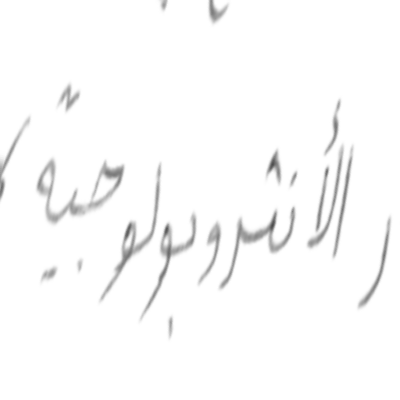 الأنثروبولوجية